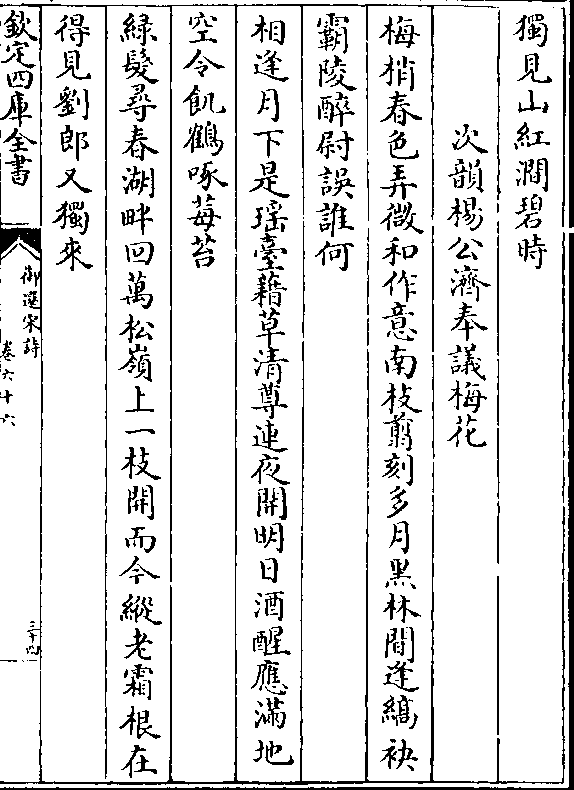 獨見山紅澗碧時
次韻楊公濟奉議梅花
梅梢春色弄微和作意南枝剪刻多月黑林間逢縞袂
霸陵醉尉誤誰何
相逢月下是瑶臺藉草清尊連夜開明日酒醒應滿地
空令飢鶴啄莓苔
綠髮尋春湖畔回萬松嶺上一枝開而今縱老霜根在
得見劉郎又獨來
欽定四庫全書
御選宋詩
卷六十六
三十四